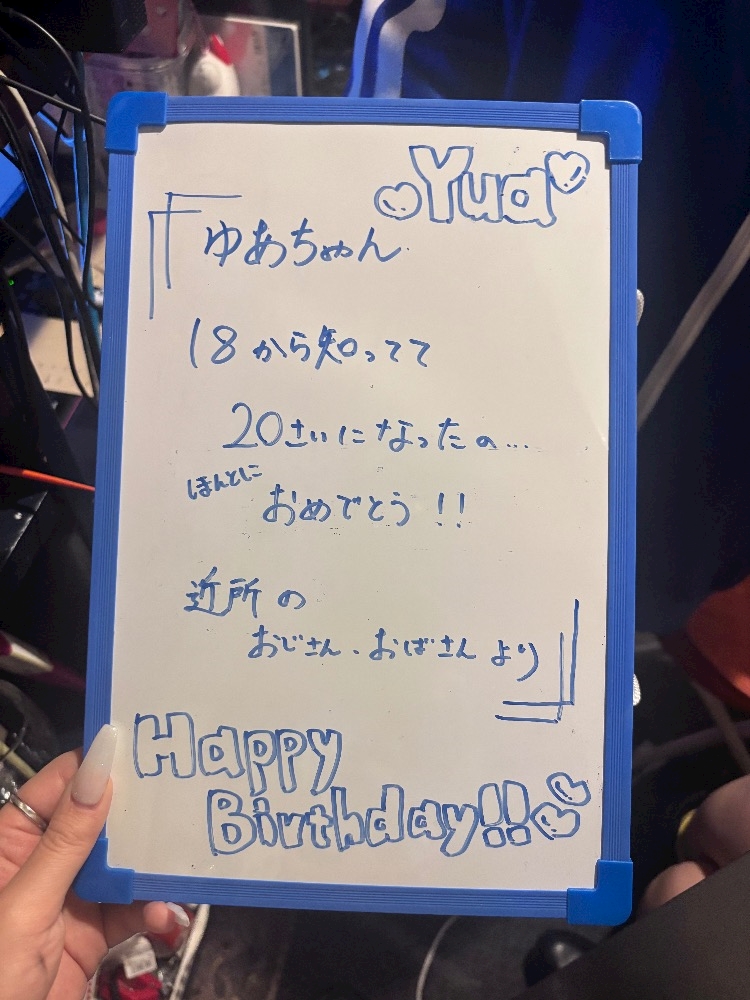 Yua
『ゆあちゃん
18から知ってて
20さいになったの…
ほんとに
おめでとう!!
近所の
おじさん、おばさんより』
Happy
Birthday!!